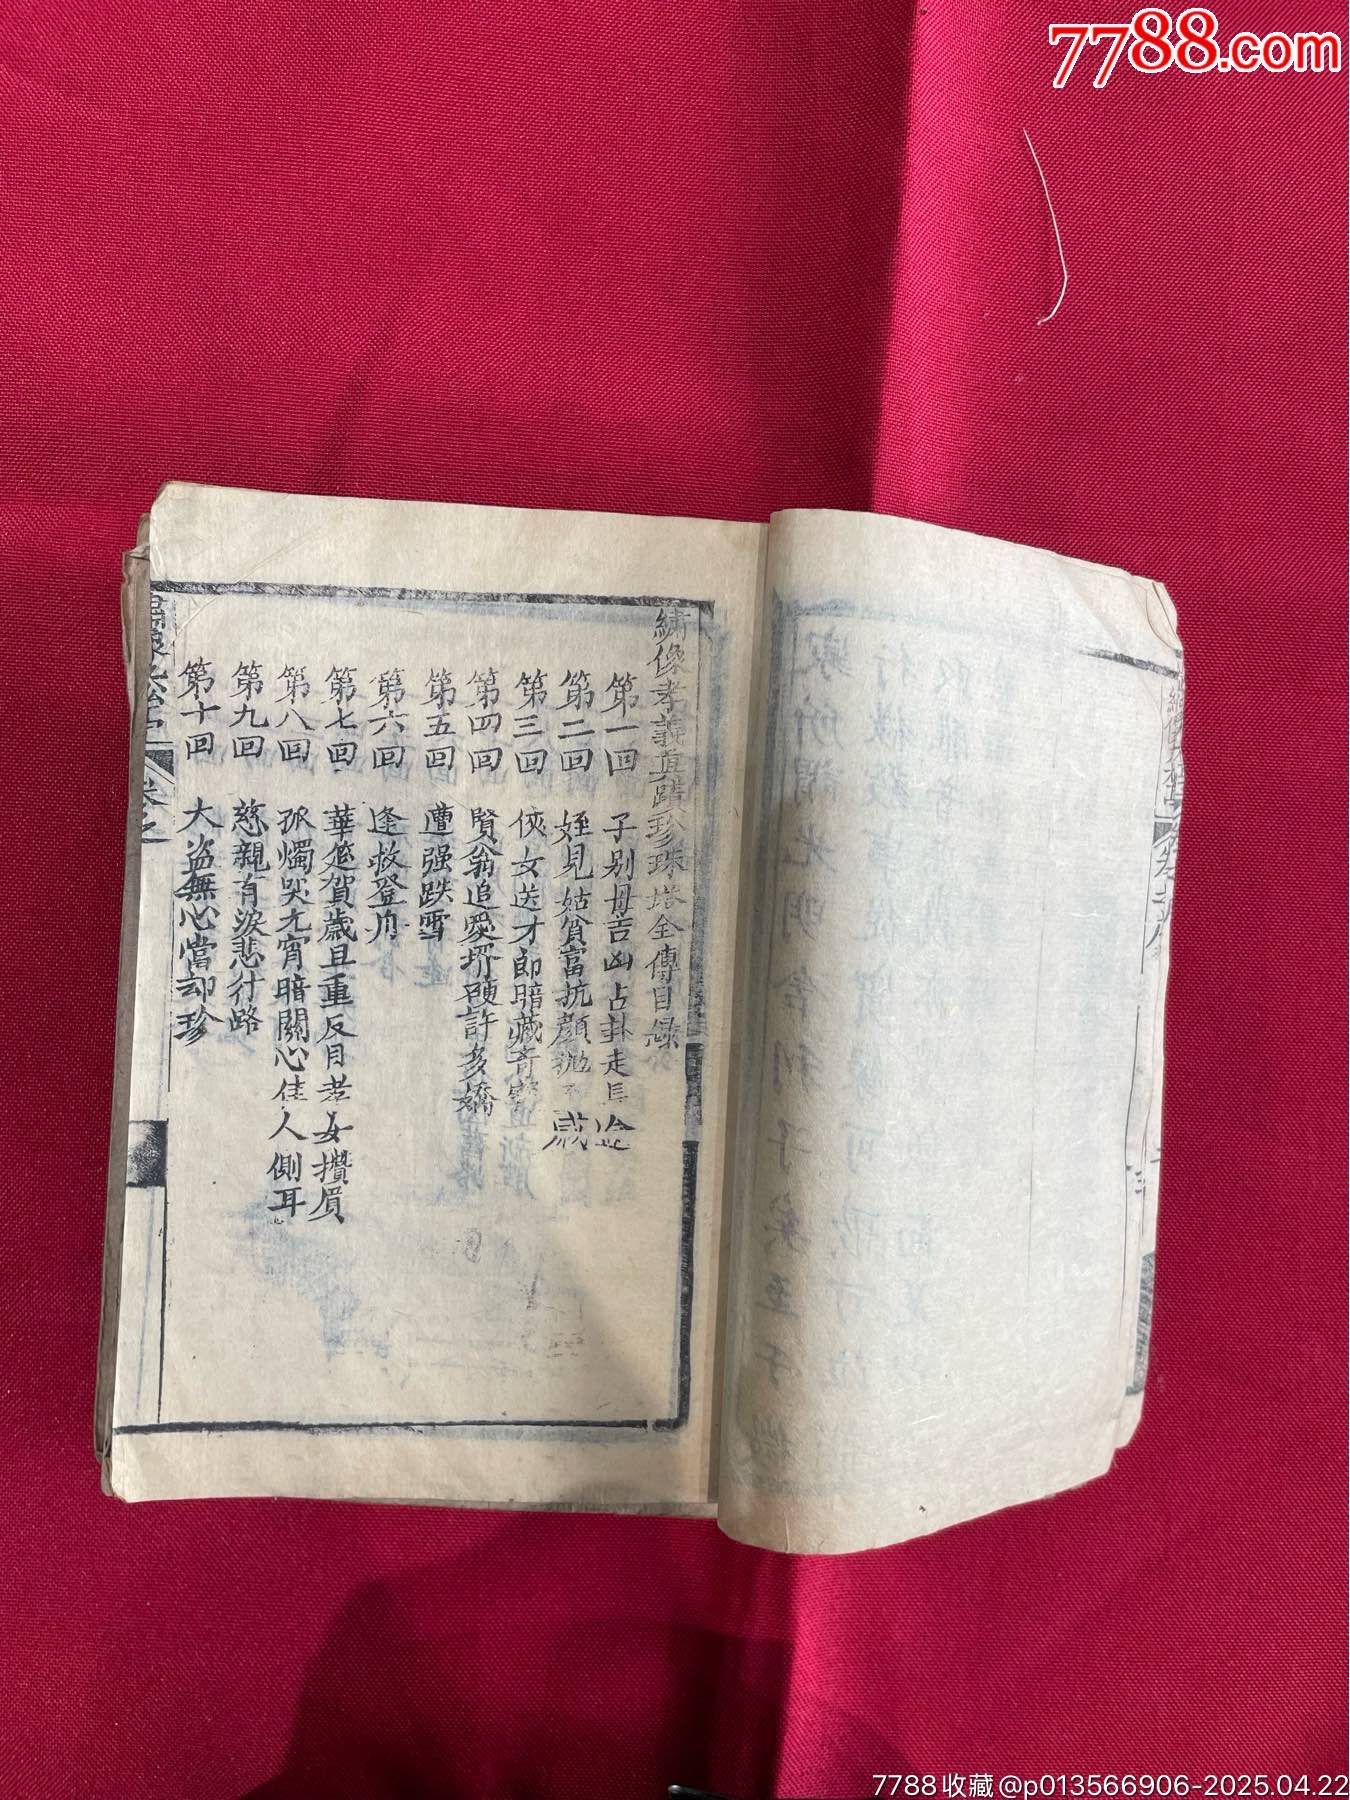 7788.com
繡像孝義真蹟珍珠塔全傳目録
第一回 子别母吉凶占卦走長途
第二回 姪見姑貧富抗顔抛 戚
第三回 俠女送才郎暗藏奇寳
第四回 賢翁追愛壻硬許多嬌
第五回 遭强跌雪
第六回 逢救登舟
第七回 華筵賀歲且重反目孝女攢眉
第八回 孤燭哭元宵暗關心佳人側耳
第九回 慈親有淚悲行路
第十回 大盗無心當却珍
7788收藏@p013566906-2025.04.22